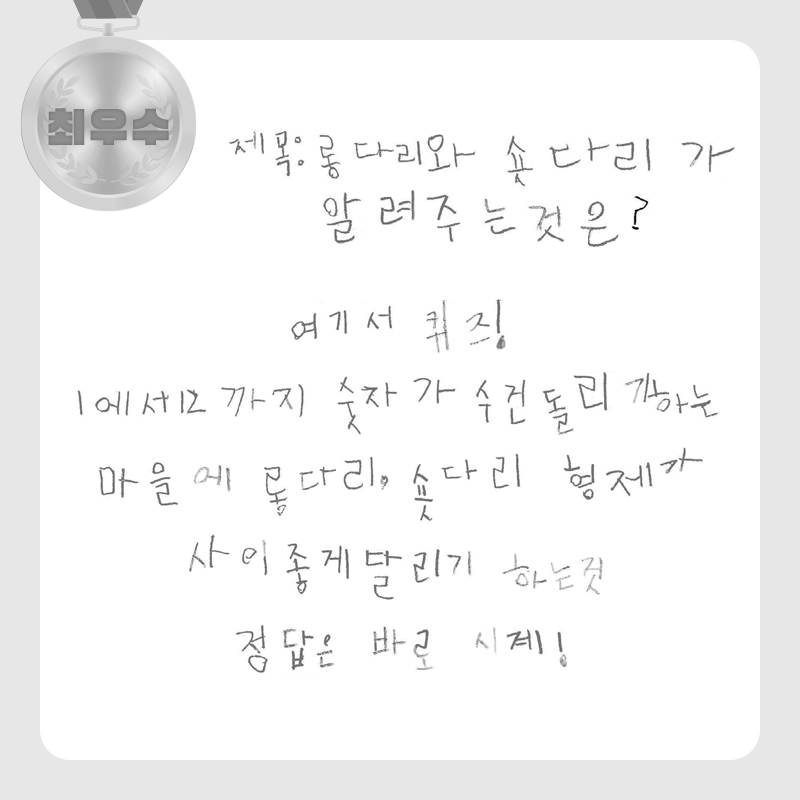 최우수
제목: 롱다리와 숏다리가
알려주는것은?
여기서 퀴즈!
1에서12까지 숫자가 수건돌리기하는
마을에 롱다리, 숏다리 형제가
사이좋게달리기 하는것
정답은 바로 시계!